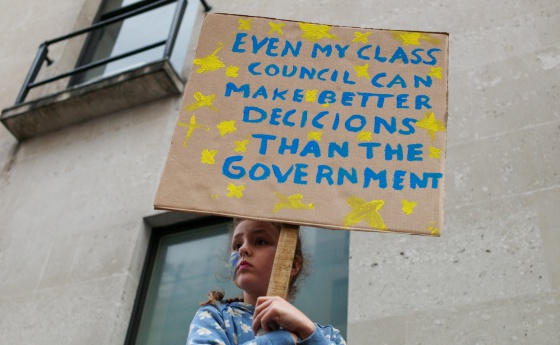 EVEN MY CLASS
COUNCIL CAN
MAKE BETTER
DECICIONS
THAN THE
GOVERNMENT